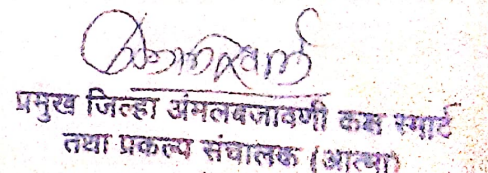 प्रमुख जिल्हा अंमलबजावणी कक्ष स्मार्ट
तथा प्रकल्प संचालक (आत्मा)